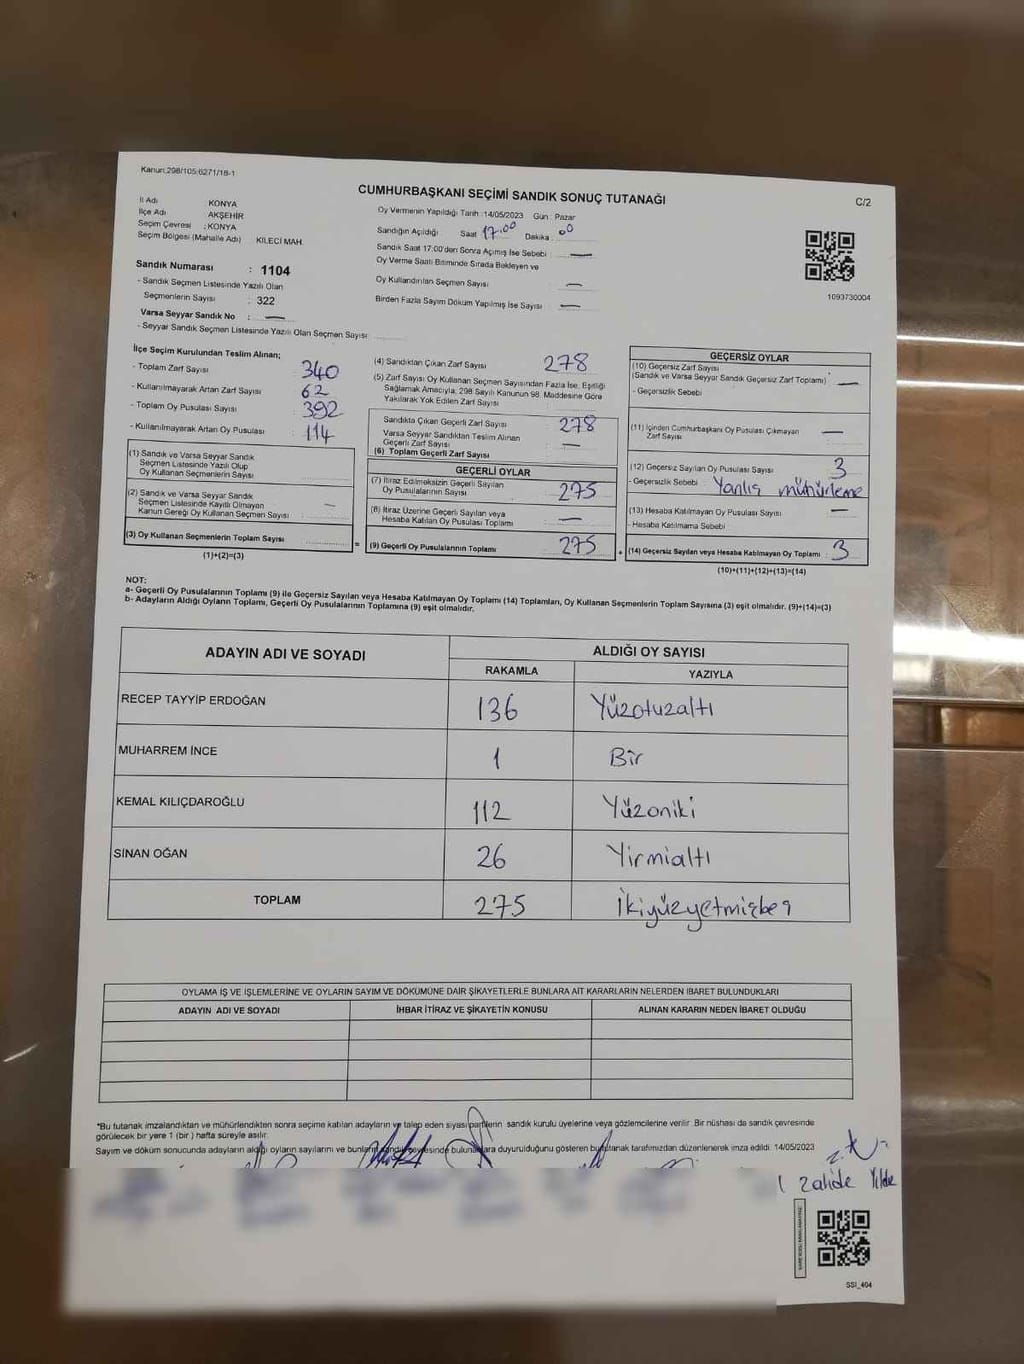 Kanun:298/105;6271/18-1
CUMHURBAŞKANI SEÇİMİ SANDIK SONUÇ TUTANAĞI
C/2
İl Adı : KONYA
İlçe Adı : AKŞEHİR
Seçim Çevresi : KONYA
Seçim Bölgesi (Mahalle Adı) KİLECİ MAH.
Sandık Numarası : 1104
- Sandık Seçmen Listesinde Yazılı Olan
Seçmenlerin Sayısı : 322
Varsa Seyyar Sandık No : —
- Seyyar Sandık Seçmen Listesinde Yazılı Olan Seçmen Sayısı:
Oy Vermenin Yapıldığı Tarih :14/05/2023 Gün : Pazar
Sandığın Açıldığı Saat 17.00 Dakika : 00
Sandık Saat 17:00'den Sonra Açımış İse Sebebi : —
Oy Verme Saati Bitiminde Sırada Bekleyen ve
Oy Kullandırılan Seçmen Sayısı : —
Birden Fazla Sayım Döküm Yapılmış İse Sayısı : —
1093730004
İlçe Seçim Kurulundan Teslim Alınan;
- Toplam Zarf Sayısı : 340
- Kullanılmayarak Artan Zarf Sayısı : 62
- Toplam Oy Pusulası Sayısı : 392
- Kullanılmayarak Artan Oy Pusulası : 114
(1) Sandık ve Varsa Seyyar Sandık
Seçmen Listesinde Yazılı Olup
Oy Kullanan Seçmenlerin Sayısı
(2) Sandık ve Varsa Seyyar Sandık
Seçmen Listesinde Kayıtlı Olmayan
Kanun Gereği Oy Kullanan Seçmen Sayısı : —
(3) Oy Kullanan Seçmenlerin Toplam Sayısı
(1)+(2)=(3)
(4) Sandıktan Çıkan Zarf Sayısı : 278
(5) Zarf Sayısı Oy Kullanan Seçmen Sayısından Fazla İse, Eşitliği
Sağlamak Amacıyla, 298 Sayılı Kanunun 98. Maddesine Göre
Yakılarak Yok Edilen Zarf Sayısı
Sandıkta Çıkan Geçerli Zarf Sayısı : 278
Varsa Seyyar Sandıktan Teslim Alınan
Geçerli Zarf Sayısı : —
(6) Toplam Geçerli Zarf Sayısı
GEÇERLİ OYLAR
(7) İtiraz Edilmeksizin Geçerli Sayılan
Oy Pusulalarının Sayısı : 275
(8) İtiraz Üzerine Geçerli Sayılan veya
Hesaba Katılan Oy Pusulası Toplamı : —
(9) Geçerli Oy Pusulalarının Toplamı : 275
GEÇERSİZ OYLAR
(10) Geçersiz Zarf Sayısı
(Sandık ve Varsa Seyyar Sandık Geçersiz Zarf Toplamı) : —
- Geçersizlik Sebebi
(11) İçinden Cumhurbaşkanı Oy Pusulası Çıkmayan
Zarf Sayısı : —
(12) Geçersiz Sayılan Oy Pusulası Sayısı : 3
- Geçersizlik Sebebi : Yanlış mühürleme
(13) Hesaba Katılmayan Oy Pusulası Sayısı : —
- Hesaba Katılmama Sebebi
(14) Geçersiz Sayılan veya Hesaba Katılmayan Oy Toplamı : 3
(10)+(11)+(12)+(13)=(14)
NOT:
a- Geçerli Oy Pusulasının Toplamı (9) ile Geçersiz Sayılan veya Hesaba Katılmayan Oy Toplamı (14) Toplamları, Oy Kullanan Seçmenlerin Toplam Sayısına (3) eşit olmalıdır. (9)+(14)=(3)
b- Adayların Aldığı Oyların Toplamı, Geçerli Oy Pusulalarının Toplamına (9) eşit olmalıdır.
ADAYIN ADI VE SOYADI
ALDIĞI OY SAYISI
RAKAMLA YAZIYLA
RECEP TAYYİP ERDOĞAN 136 Yüzotuzaltı
MUHARREM İNCE 1 Bir
KEMAL KILIÇDAROĞLU 112 Yüzoniki
SİNAN OĞAN 26 Yirmialtı
TOPLAM 275 İkiyüzyetmişbeş
OYLAMA İŞ VE İŞLEMLERİNE VE OYLARIN SAYIM VE DÖKÜMÜNE DAİR ŞİKAYETLERLE BUNLARA AİT KARARLARIN NELERDEN İBARET BULUNDUKLARI
ADAYIN ADI VE SOYADI İHBAR İTİRAZ VE ŞİKAYETİN KONUSU ALINAN KARARIN NEDEN İBARET OLDUĞU
*Bu tutanak imzalandıktan ve mühürlendikten sonra seçime katılan adayların ve talep eden siyasi partilerin sandık kurulu üyelerine veya gözlemcilerine verilir. Bir nüshası da sandık çevresinde
görülecek bir yere 1 (bir) hafta süreyle asılır.
Sayım ve döküm sonucunda adayların aldığı oyların sayılarını ve bunların sandık çevresinde bulunanlara duyurulduğunu gösteren bu tutanak tarafımızdan düzenlenerek imza edildi. 14/05/2023
Zahide
SSI_404